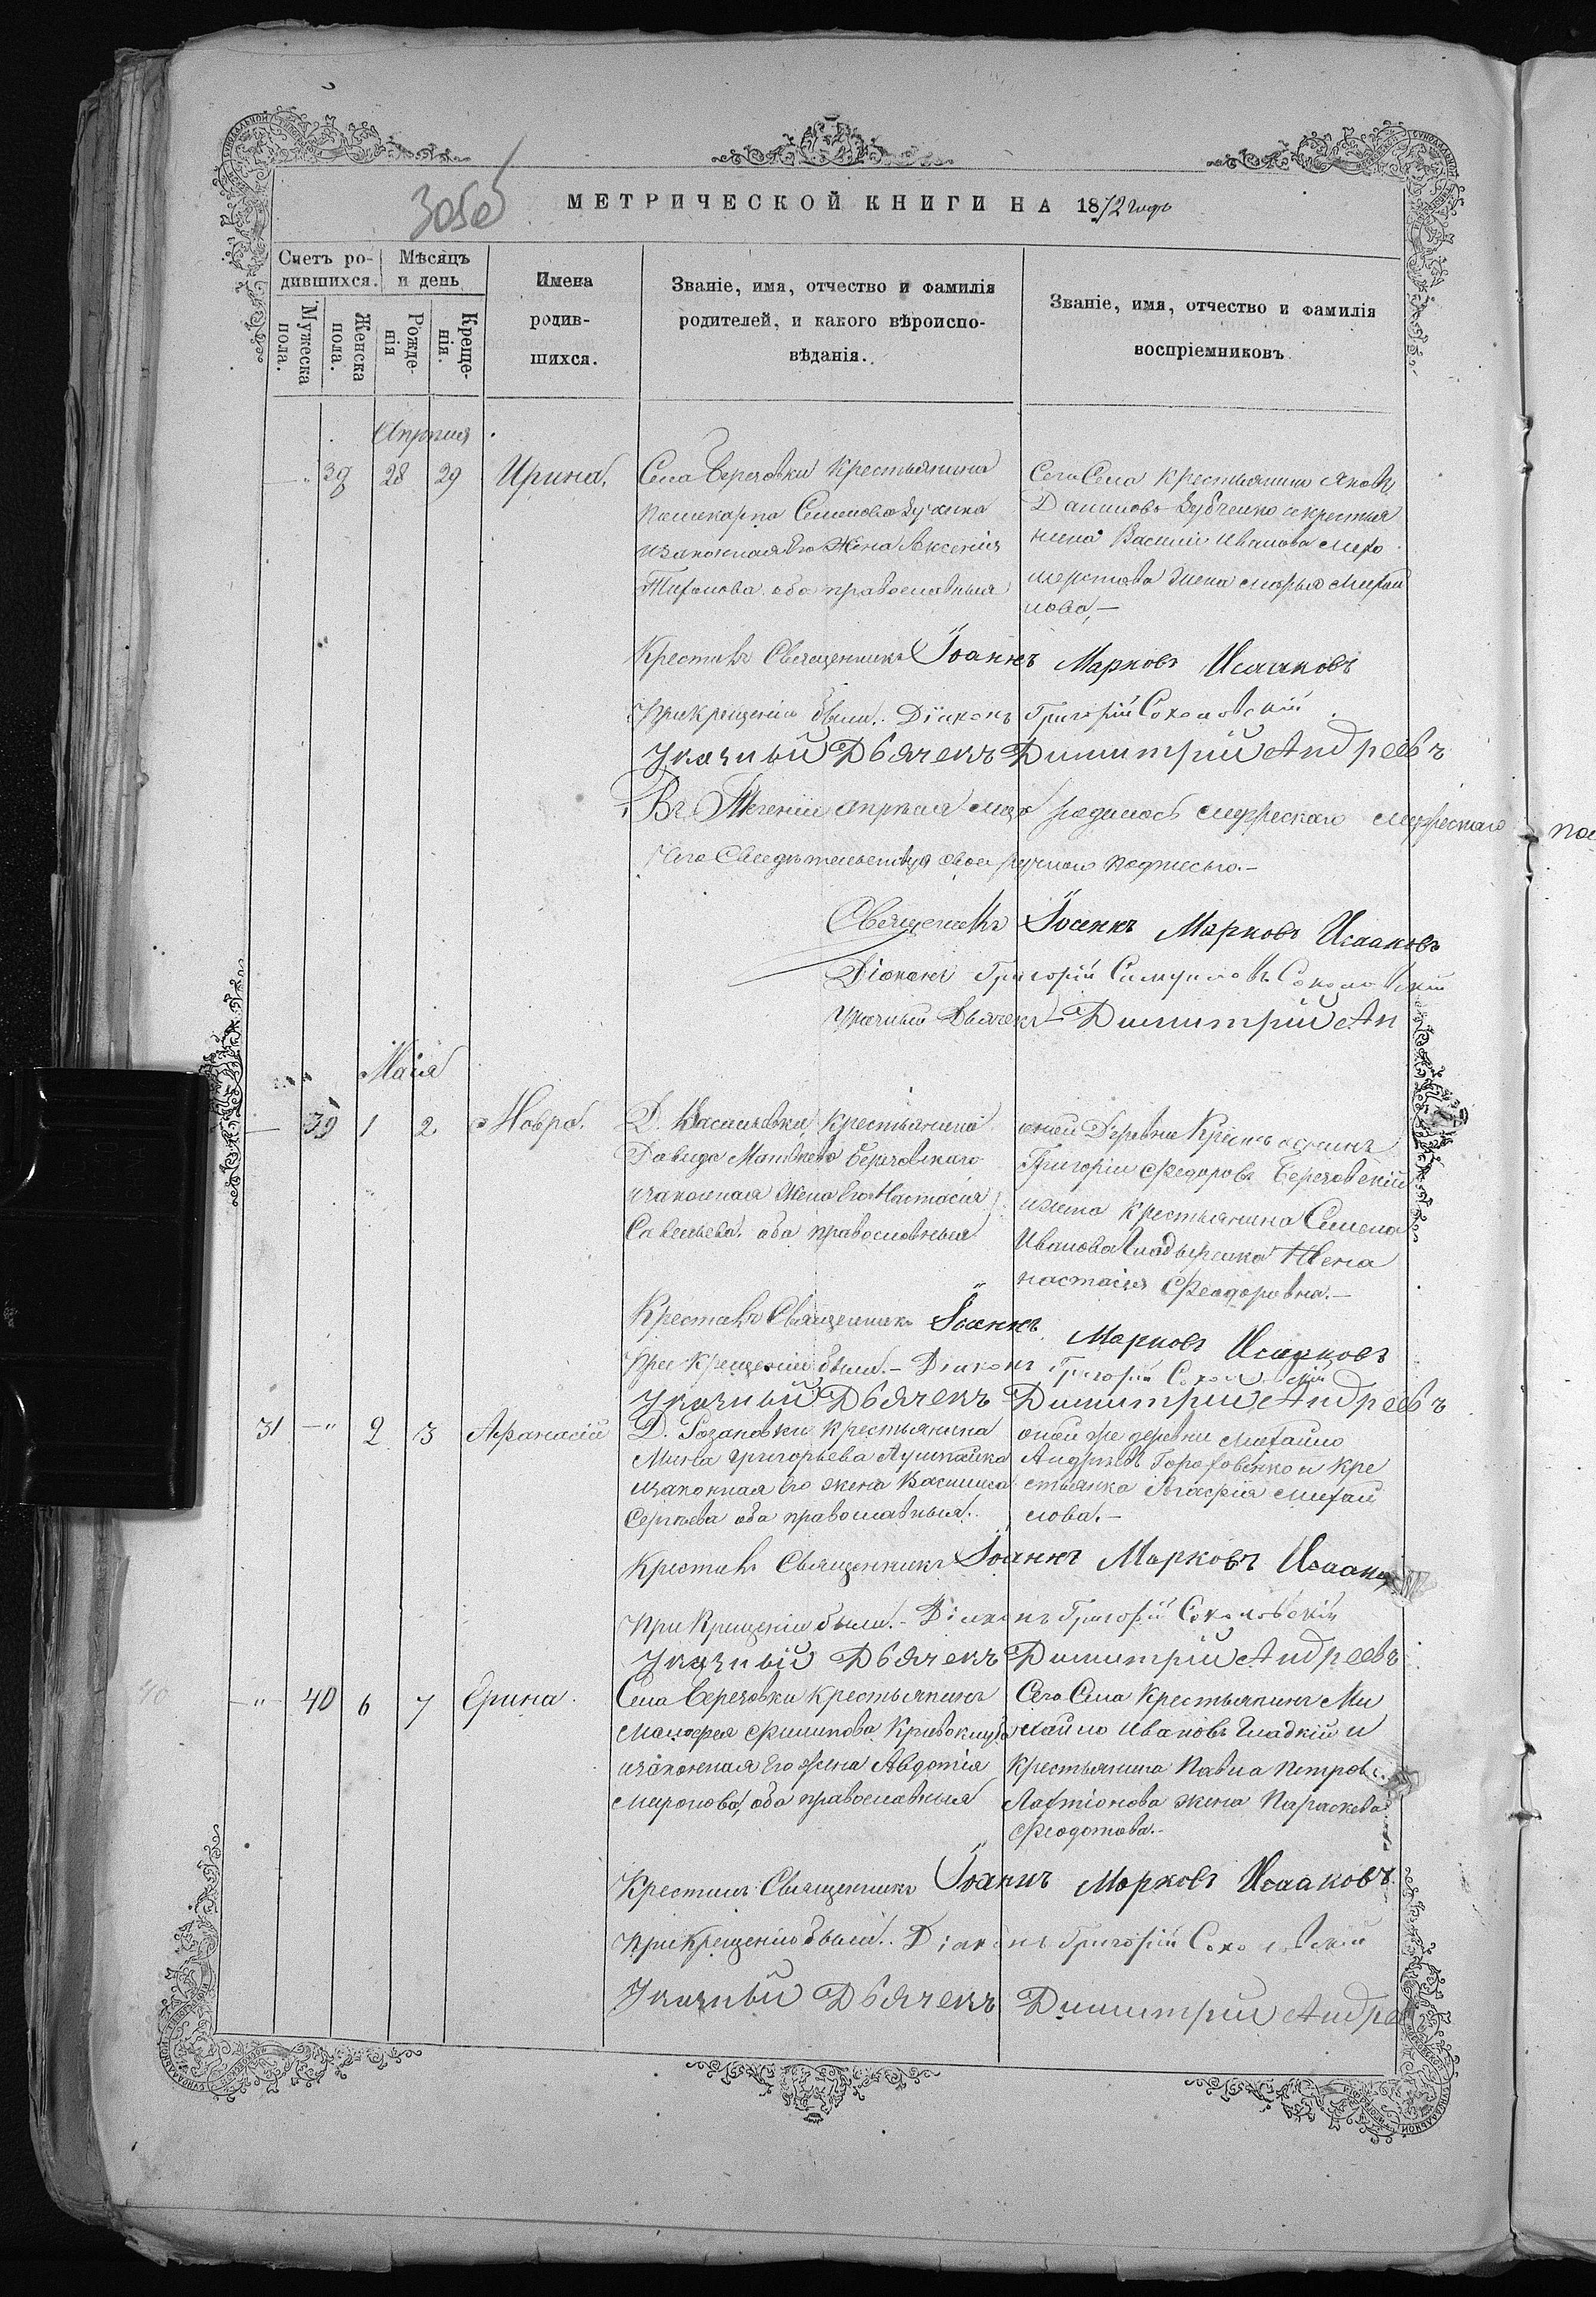 305об
МЕТРИЧЕСКОЙ КНИГИ НА 1872 годъ
Счетъ ро-
дившихся.
Мѣсяцъ
и день
Мужеска
пола.
Женска
пола.
Рожде-
нія
Креще-
нія.
Имена
родив-
шихся.
Званіе, имя, отчество и фамилія
родителей, и какого вѣроиспо-
вѣданія.
Званіе, имя, отчество и фамилія
воспріемниковъ
Апрѣля
38 28 29 Ирина,
Села Березовки Крестьянина
Поликарпа Семенова
изаконная Его Жена Аксенія
Тихонова оба православныя
Сего Села крестьянинъ Яковъ
Даниловъ Зубченко икрестья
нина Василія Иванова
жена Марья Михай
лова,—
Крестилъ Священникъ Іоаннъ Марковъ Исааковъ
При Крещеніи были. Діаконъ Григорій Соколовскій
Указный Дьячекъ Димитрій Андреевъ
Въ Теченіи апрѣля родилось
Чего Свидѣтельствуя своеручною подписью.—
Священникъ Іоаннъ Марковъ Исааковъ
Діаконъ Григорій Соколовскій
Указный Дьячекъ Димитрій Ан
Маія
— 39 1 2 Мавра.
Д. Васильевки, Крестьянина
Давида Матвѣева Березовскаго
изаконная Жена Его Настасія
Савельева. оба православныя
оной Деревни Крестьянинъ
Григорій Федоровъ Березовскій
крестьянина Семена
Иванова Жена
настасія Феодоровна.—
Крестилъ Священникъ Іоаннъ Марковъ Исааковъ
При Крещеніи были.— Діаконъ Григорій Соколовскій
Указный Дьячекъ Димитрій Андреевъ
31 —" 2 3 Афанасій
Д. крестьянина
Григорьева
изаконная Его жена Василиса
Сергѣева оба православныя.
оной же деревни Михайло
Андреевъ Гороховенко и кре
стьянка Агафія Михай
лова.—
Крестилъ Священникъ Іоаннъ Марковъ Исааковъ
При Крещеніи были.— Діаконъ Григорій Соколовскій
Указный Дьячекъ Димитрій Андреевъ
—"— 40 6 7 Ерина.
Села Березовки Крестьянинъ
Филипова
изаконная Его Жена Авдотія
Миронова, оба православныя
Сего Села Крестьянинъ Ми
хайло Ивановъ Гладкій и
Крестьянина Павла Петрова
Лахтіонова жена Параскева
Феодотова.—
Крестилъ Священникъ Іоаннъ Марковъ Исааковъ.
При Крещеніи были. Діаконъ Григорій Соколовскій
Указный Дьячекъ Димитрій Андрее